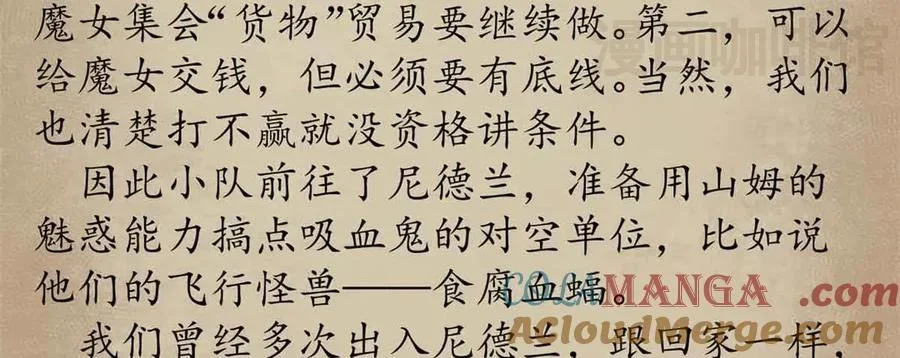 魔女集会“货物”贸易要继续做。第二，可以
给魔女交钱，但必须要有底线。当然，我们
也清楚打不赢就没资格讲条件。
因此小队前往了尼德兰，准备用山姆的
魅惑能力搞点吸血鬼的对空单位，比如说
他们的飞行怪兽——食腐血蝠。
我们曾经多次出入尼德兰，跟回家一样
漫画咖啡馆
COLAMANGA.com
ACloudMerge.com